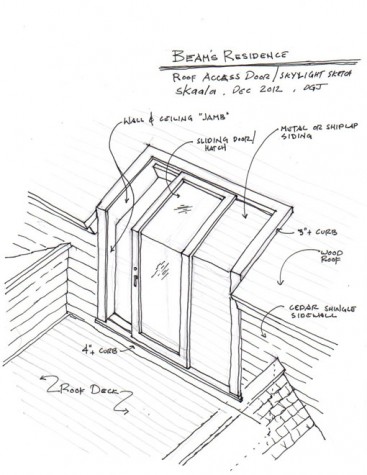 BEAM'S RESIDENCE
ROOF ACCESS DOOR/SKYLIGHT SKETCH
skaala . DEC 2012 . DGJ
WALL & CEILING "JAMB"
SLIDING DOOR/
HATCH
METAL OR SHIPLAP
SIDING
8"+ CURB
WOOD
ROOF
CEDAR SHINGLE
SIDEWALL
4"+ CURB
ROOF DECK